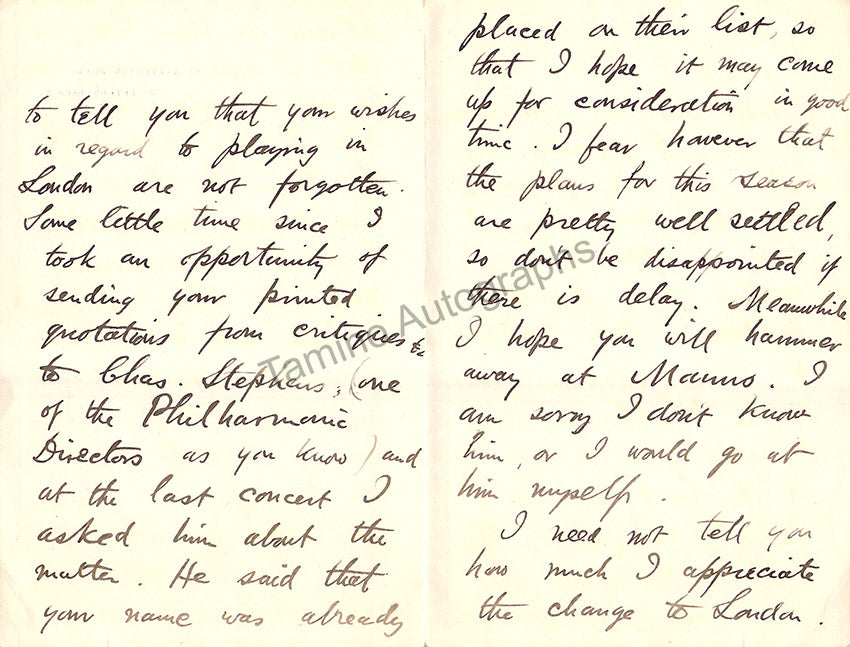 to tell you that your wishes
in regard to playing in
London are not forgotten.
Some little time since I
took an opportunity of
sending your printed
quotations from critiques &c
to Chas. Stephens, (one
of the Philharmonic
Directors as you know) and
at the last concert I
asked him about the
matter. He said that
your name was already
placed on their list, so
that I hope it may come
up for consideration in good
time. I fear however that
the plans for this season
are pretty well settled,
so don't be disappointed if
there is delay. Meanwhile
I hope you will hammer
away at Manns. I
am sorry I don't know
him, or I would go at
him myself.
I need not tell you
how much I appreciate
the change to London.
Tamino Autographs